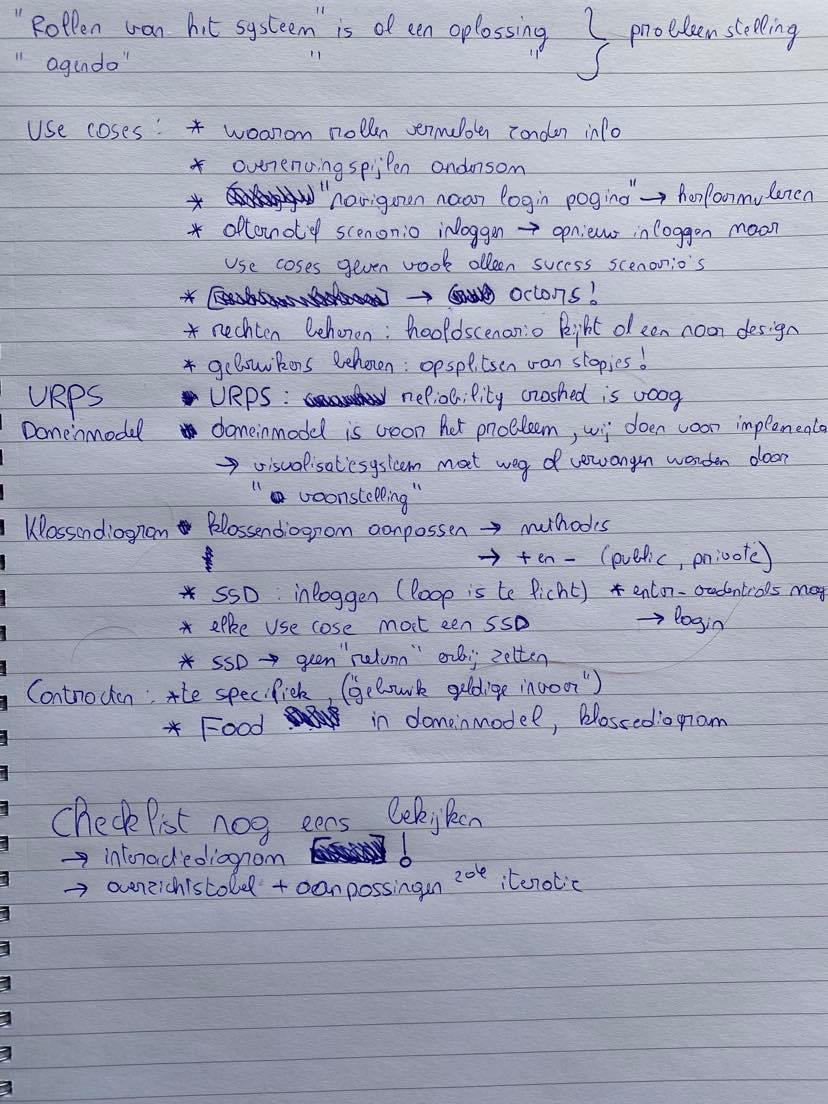 "Rollen van het systeem" is al een oplossing } probleemstelling
" agenda" " "
Use cases: * waarom rollen vermelden zonder info
* overervingspijlen andersom
* "navigeren naar login pagina" → herformuleren
* alternatief scenario inloggen → opnieuw inloggen maar
use cases geven vaak alleen sucess scenario's
* → actors!
* rechten beheren: hoofdscenario kijkt al een naar design
* gebruikers beheren: opsplitsen van stapjes!
URPS URPS: reliability crashed is vaag
Domeinmodel domeinmodel is voor het probleem, wij doen voor implementa
→ visualisatiesysteem moet weg of vervangen worden door
" voorstelling"
Klassendiagram klassendiagram aanpassen → methodes
→ + en - (public, private)
* SSD: inloggen (loop is te licht) * enter-credentials mag
* elke use case moet een SSD → login
* SSD → geen "return" erbij zetten
Contracten: * te specifiek, ("gebruik geldige invoer")
* Food in domeinmodel, klassediagram
Checklist nog eens bekijken
→ interactiediagram !
→ overzichtstabel + aanpassingen 2de iteratie